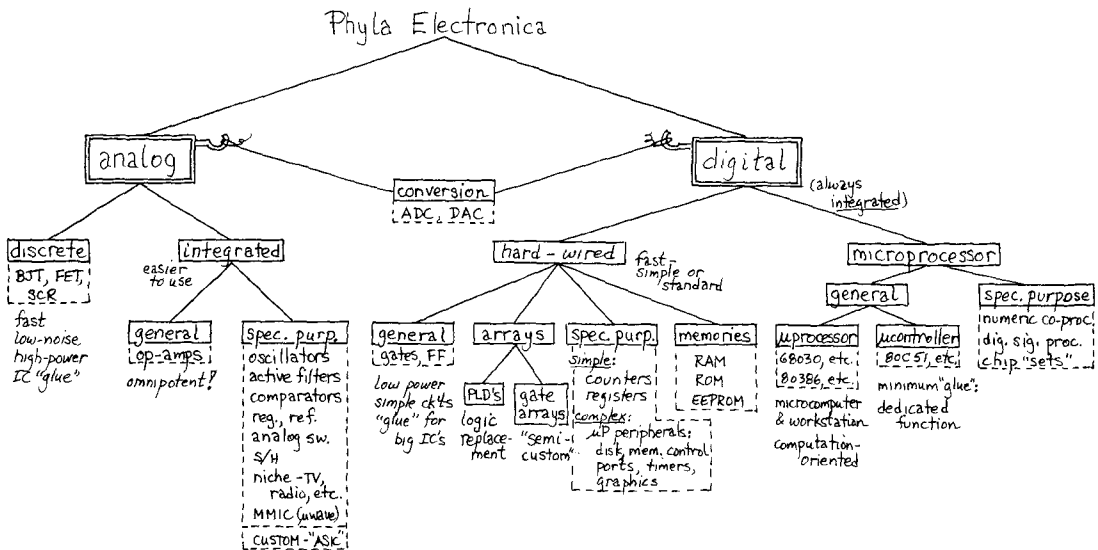 Phyla Electronica
analog
digital
conversion
ADC, DAC
(always
integrated)
discrete
BJT, FET,
SCR
fast
low-noise
high-power
IC "glue"
integrated
easier
to use
general
op-amps
omnipotent!
spec. purp.
oscillators
active filters
comparators
reg., ref.
analog sw.
S/H
niche - TV,
radio, etc.
MMIC (μwave)
CUSTOM - "ASIC"
hard-wired
fast -
simple or
standard
general
gates, FF
low power
simple ckts
"glue" for
big IC's
arrays
PLD's
logic
replace-
ment
gate
arrays
"semi-
custom"
spec. purp.
simple:
counters
registers
complex:
μP peripherals:
disk, mem. control
ports, timers,
graphics
memories
RAM
ROM
EEPROM
microprocessor
general
μprocessor
68030, etc.
80386, etc.
microcomputer
& workstation
computation-
oriented
μcontroller
80C51, etc.
minimum "glue";
dedicated
function
spec. purpose
numeric co-proc.
dig. sig. proc.
chip "sets"